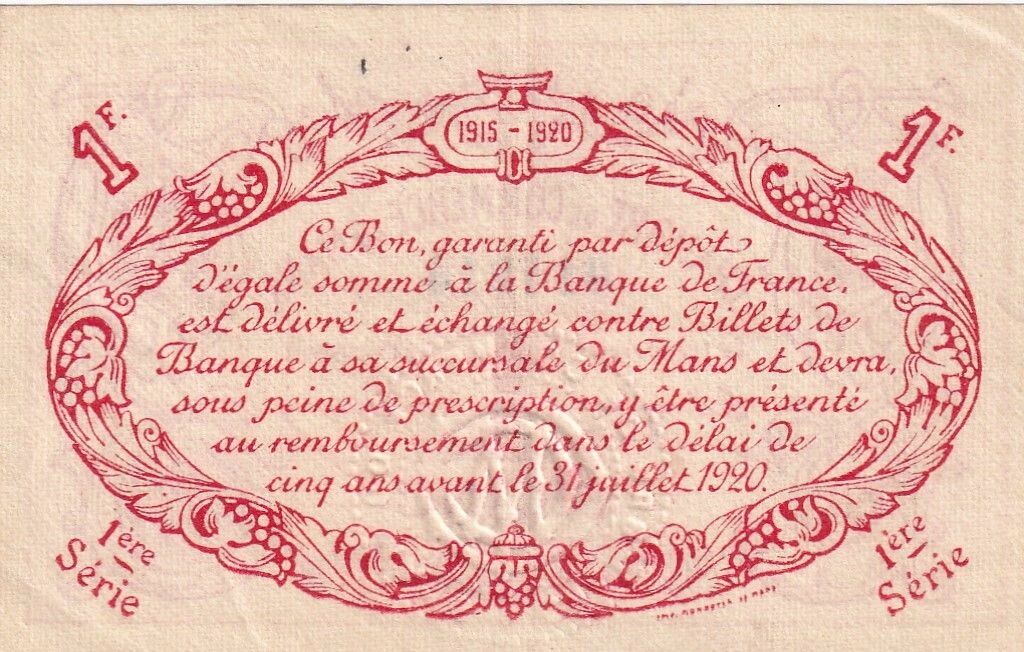 1 F.
1915 - 1920
1 F.
Ce Bon, garanti par dépôt
d'égale somme à la Banque de France,
est délivré et échangé contre Billets de
Banque à sa succursale du Mans et devra,
sous peine de prescription, y être présenté
au remboursement dans le délai de
cinq ans avant le 31 juillet 1920.
1ère
Série
1ère
Série
IMP. MONNOYER LE MANS